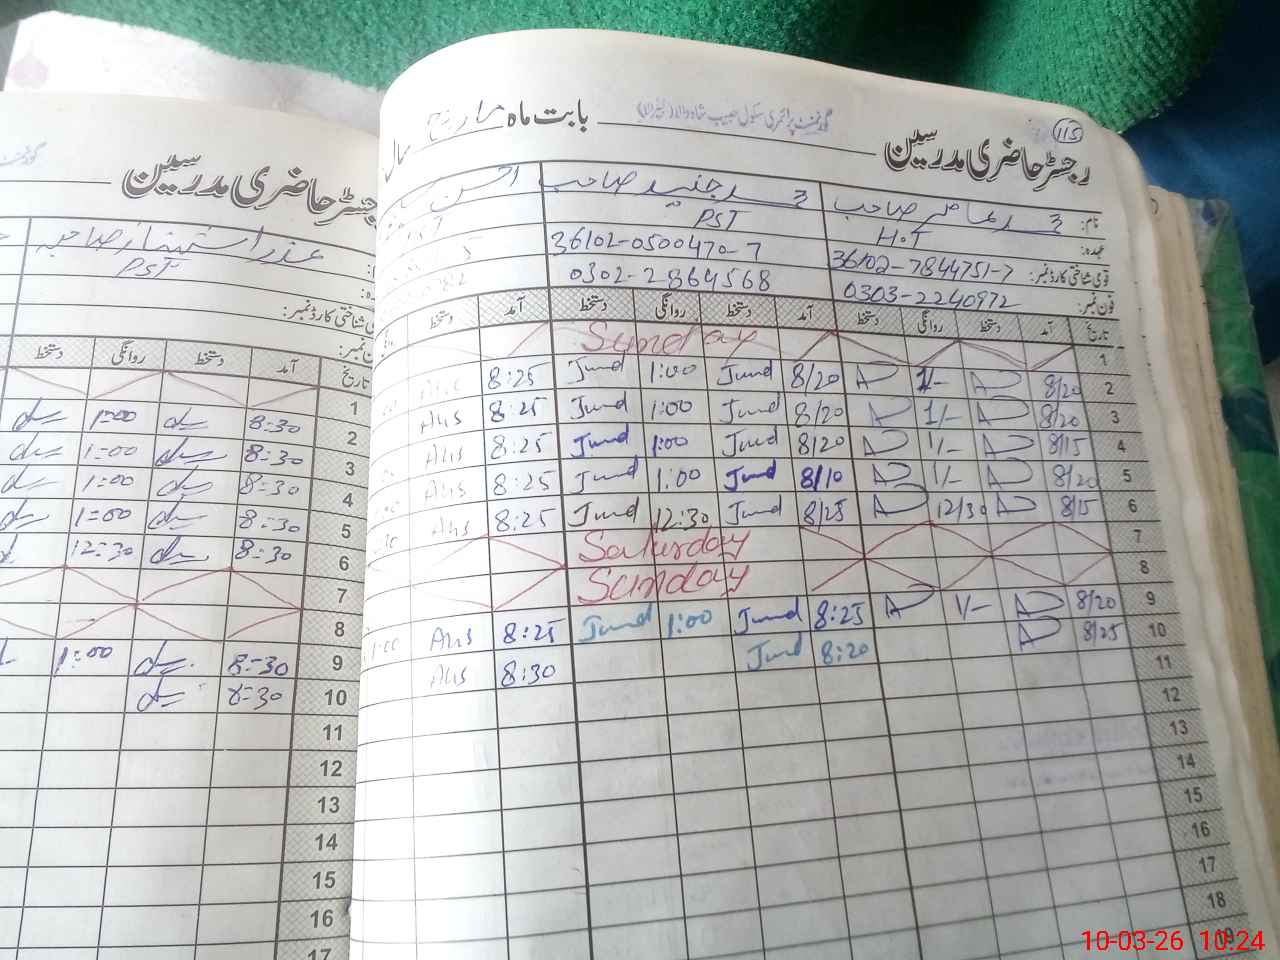 115
گورنمنٹ پرائمری سکول حبیب شاہ والا
رجسٹر حاضری مدرسین بابت ماہ مارچ سال
نام: محمد عامر صاحب محمد جنید صاحب احسن
عہدہ: H.T PST
قومی شناختی کارڈ نمبر: 36102-7844751-7 36102-0500470-7
فون نمبر: 0303-2240972 0302-2864568
تاریخ آمد دستخط روانگی دستخط آمد دستخط روانگی دستخط آمد دستخط
1 Sunday
2 8/20 1/- 8/20 Jund 1:00 Jund 8:25 Ahs
3 8/20 1/- 8/20 Jund 1:00 Jund 8:25 Ahs
4 8/15 1/- 8/20 Jund 1:00 Jund 8:25 Ahs
5 8/20 1/- 8/10 Jund 1:00 Jund 8:25 Ahs
6 8/15 12/30 8/25 Jund 12:30 Jund 8:25 Ahs
7 Saturday
8 Sunday
9 8/20 1/- 8:25 Jund 1:00 Jund 8:25 Ahs 1:00
10 8/25 8:20 Jund 8:30 Ahs
11
12
13
14
15
16
17
18
19
رجسٹر حاضری مدرسین
عذرا شہناز صاحبہ
PST
قومی شناختی کارڈ نمبر:
فون نمبر:
تاریخ آمد دستخط روانگی دستخط
1
2 8:30 1:00
3 8:30 1:00
4 8:30 1:00
5 8:30 1:00
6 8:30 12:30
7
8
9 8:30 1:00
10 8:30
11
12
13
14
15
16
17
10-03-26 10:24